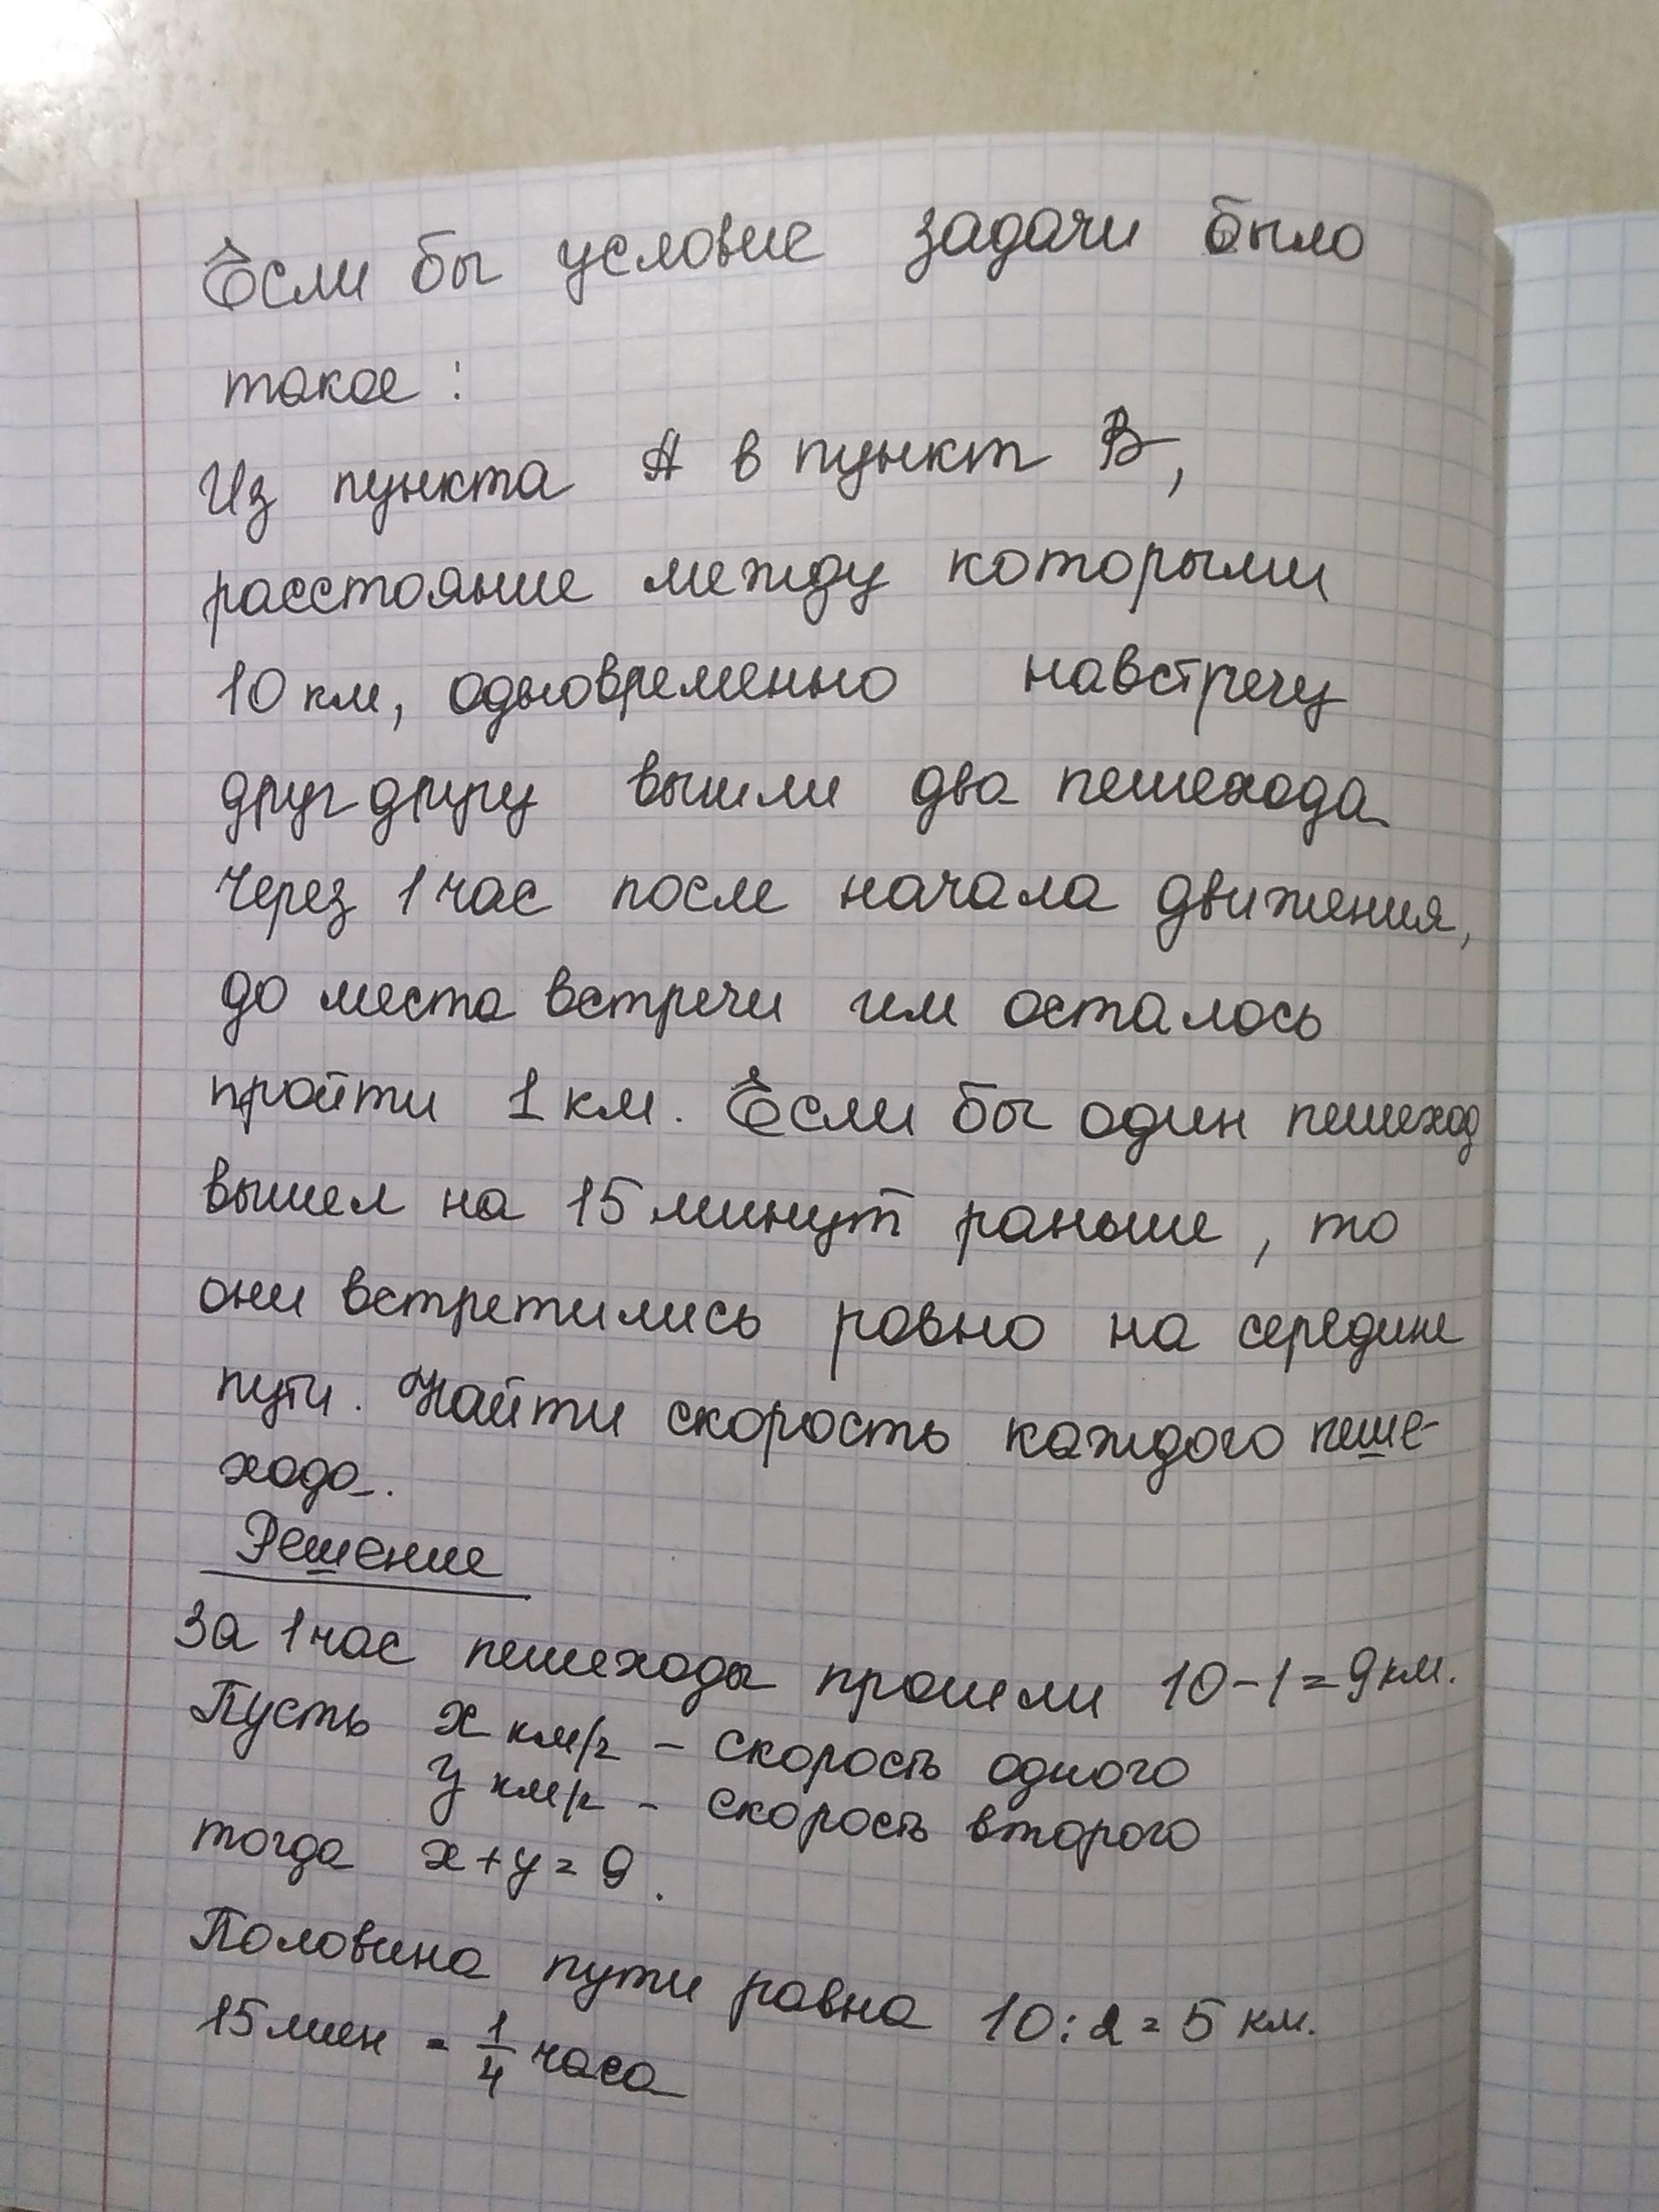 Если бы условие задачи было
такое:
Из пункта А в пункт В,
расстояние между которыми
10 км, одновременно навстречу
друг другу вышли два пешехода
Через 1 час после начала движения,
до места встречи им осталось
пройти 1 км. Если бы один пешеход
вышел на 15 минут раньше, то
они встретились ровно на середине
пути. Найти скорость каждого пеше-
хода.
Решение
За 1 час пешеходы прошли 10-1=9км.
Пусть х км/ч - скорость одного
у км/ч - скорость второго
тогда х+у=9.
Половина пути равна 10:2=5 км.
15 мин = 1/4 часа